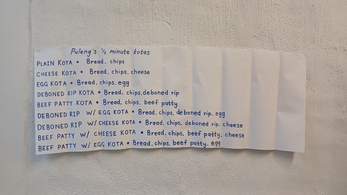 Puleng's ½ minute kotas
PLAIN KOTA • Bread, chips
CHEESE KOTA • Bread, chips, cheese
EGG KOTA • Bread, chips, egg
DEBONED RIP KOTA • Bread, chips, deboned rip
BEEF PATTY KOTA • Bread, chips, beef patty
DEBONED RIP W/ EGG KOTA • Bread, chips, deboned rip, egg
DEBONED RIP W/ CHEESE KOTA • Bread, chips, deboned rip, cheese
BEEF PATTY W/ CHEESE KOTA • Bread, chips, beef patty, cheese
BEEF PATTY W/ EGG KOTA • Bread, chips, beef patty, egg